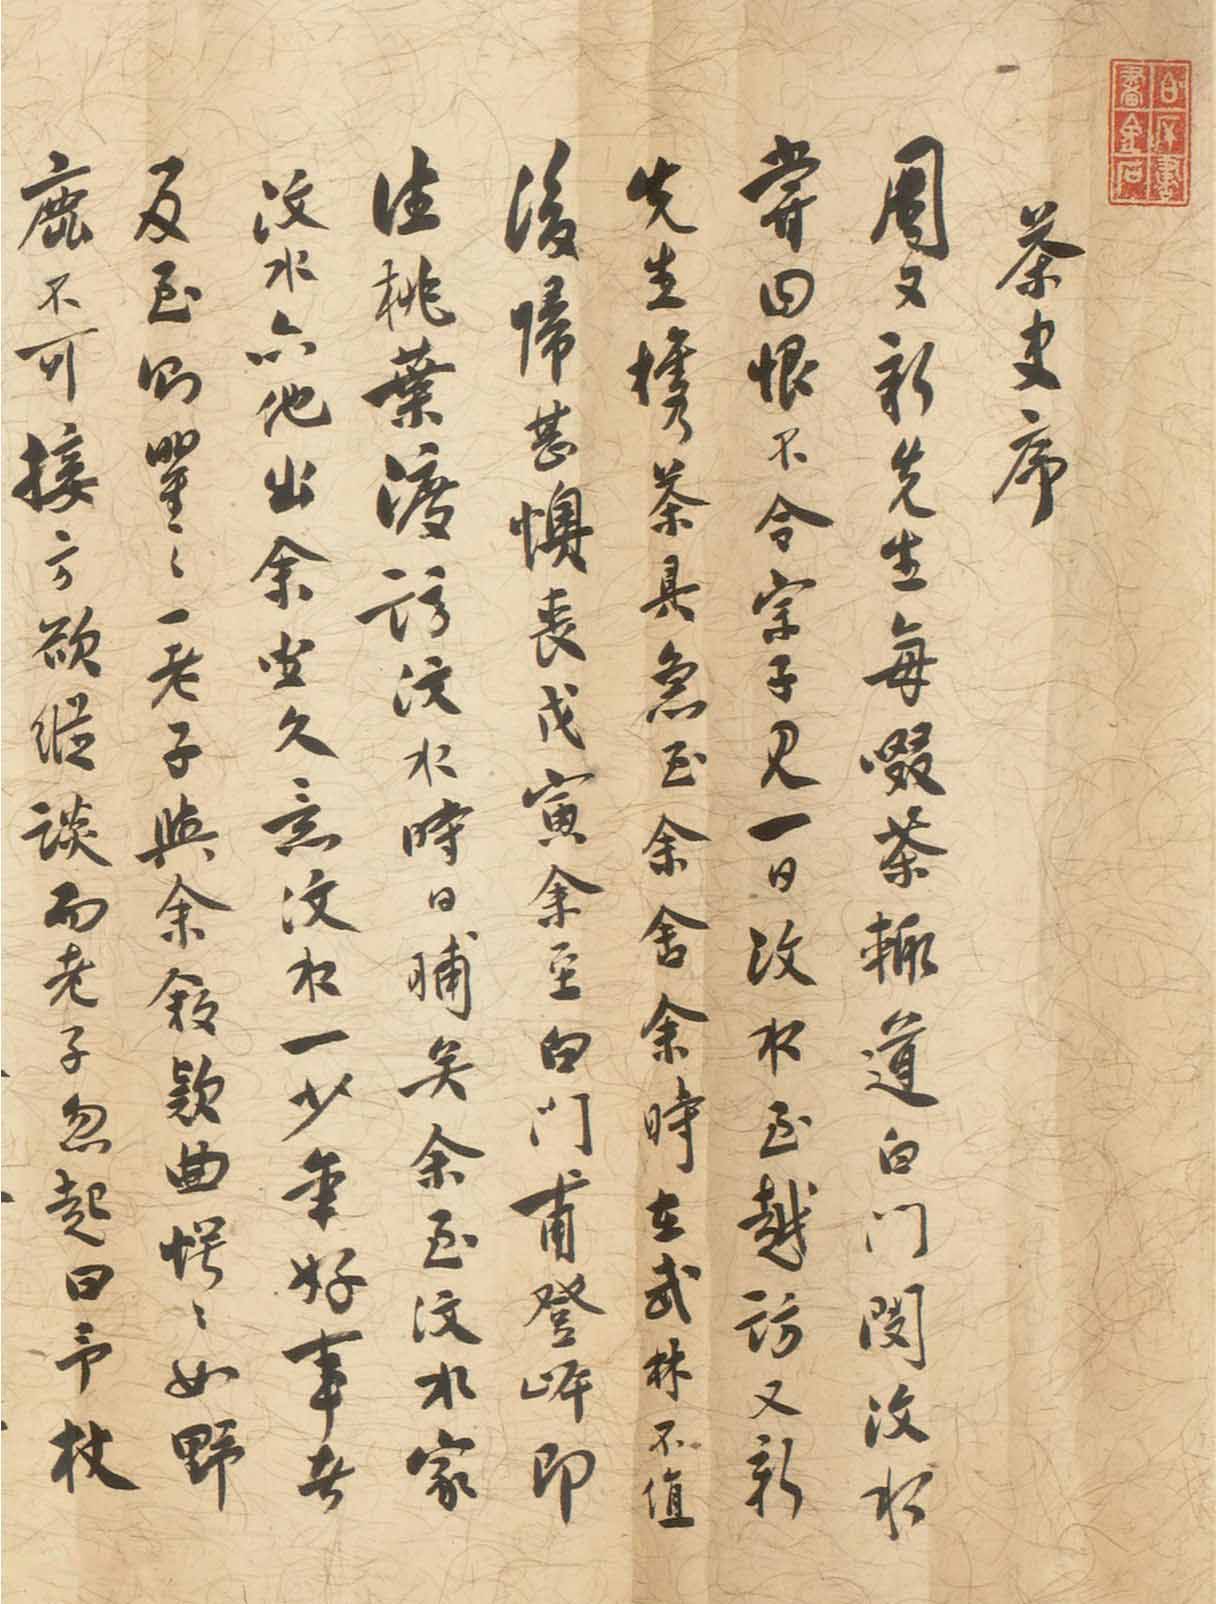 茶史序
周又新先生每啜茶輒道白門閔汶水
嘗曰恨不令宗子見一日汶水至越訪又新
先生攜茶具急至余舍余時在武林不值
後歸甚懊喪戊寅余至白門甫登岸即
往桃葉渡訪汶水時日晡矣余至汶水家
汶水亦他出余坐久意汶水一少年好事者
及至則瞿〻一老子與余敘款曲愕〻如野
鹿不可接方欲縱談而老子忽起曰予杖